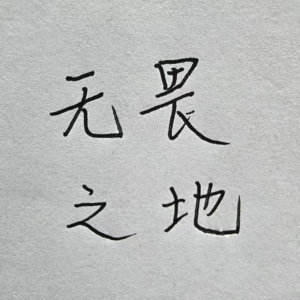 无畏
之地